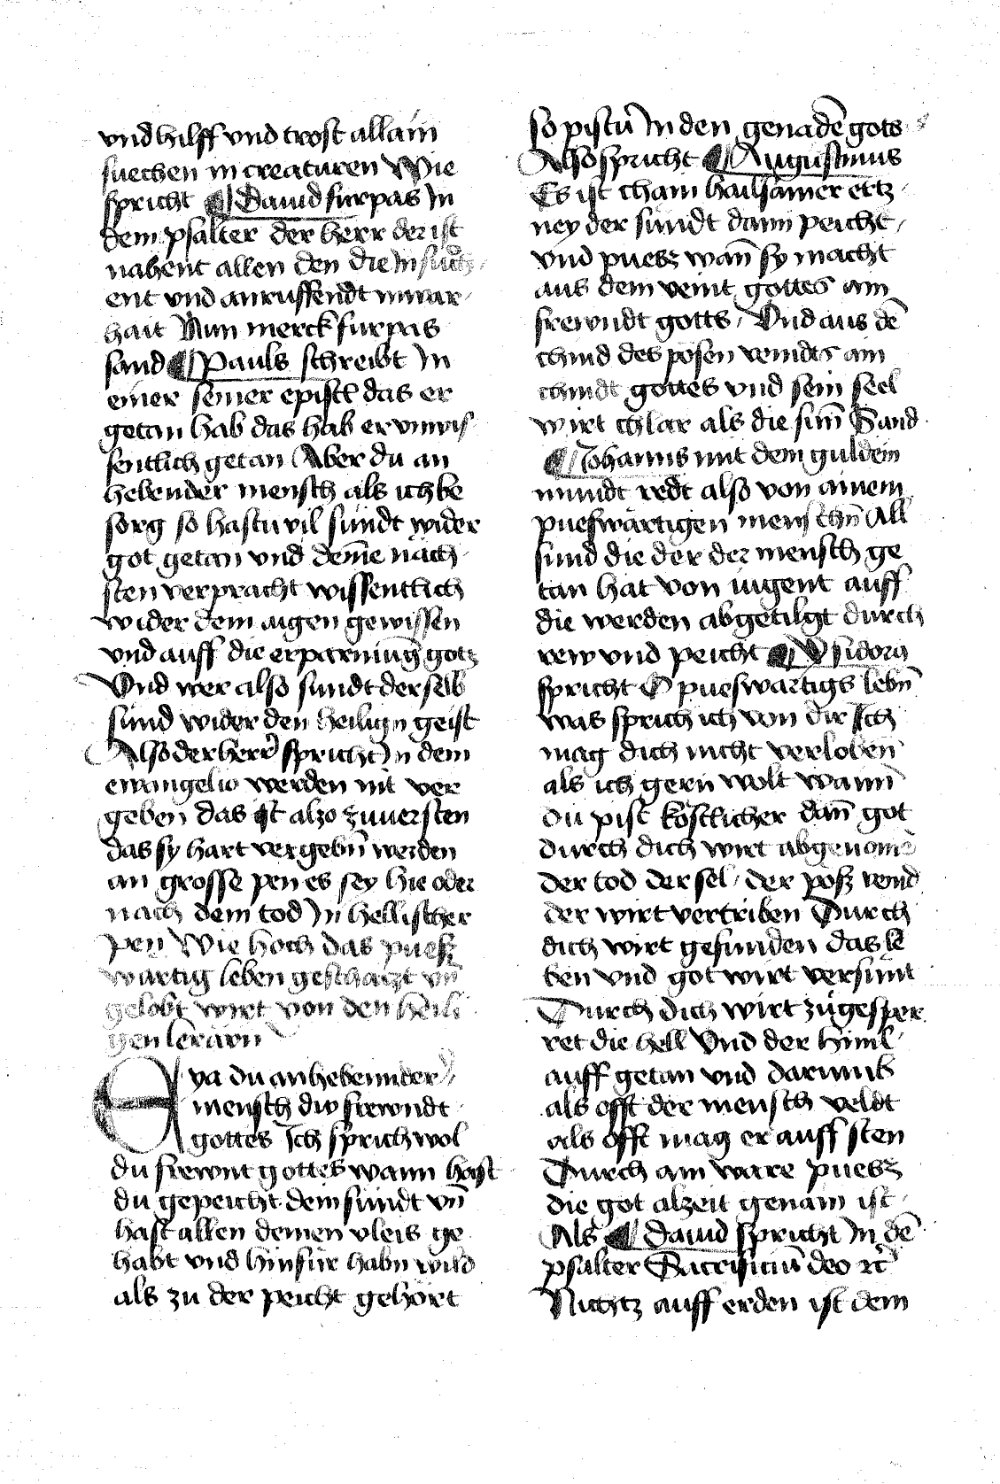 vnd hilff vnd trost allain
suechen in creaturen Wie
spricht ¶ Dauid furpas Jn
dem psalter der herr der ist
nahent allen den die Jn suech
ent vnd anruffendt in war
hait Nun merck furpas
sand ¶ Pauls schreibt Jn
einer seiner epistl das er
getan hab das hab er vnwis
sentlich getan Aber du an
hebender mensch als ich be
sorg so hastu vil sundt wider
got getan vnd dem̄e näch
sten verpracht wissentlich
wider dem aigen gewissen
vnd auff die erparmūg gotz
Vnd wer also sundt der selb
sund wider den heilign geist
Also der herr spricht Jn dem
ewangelio werden nit ver
geben das ist alzo zuuersten
das sy hart vergebn̄ werden
an grosse pen es sey hie oder
nach dem tod Jn hellischer
pen Wie hoch das puesz
wartig leben geschatzt vn̄
gelobt wirt von den heili
gen lerärn
Eya du anhebennder
mensch dw frewndt
gottes Ich sprich wol
du frewnt gottes wann hast
du gepeicht dein sundt vn̄
hast allen deinen vleis ge
habt vnd hinfür habn wild
als zu der peicht gehört
so pistu Jn den genadē gots
Also spricht ¶ Augustinus
Es ist chain hailsamer ertz
ney der sundt dann peicht
vnd puesz wan̄ sy macht
aus dem veint gottes ain
frewndt gotts Vnd aus dē
chind des posen veindts ain
chindt gottes vnd sein seel
wirt chlar als die sun̄ Sand
¶ Johanns mit dem guldein
mundt redt also von ainem
pueswartigen menschn̄ All
sund die der der mensch ge
tan hat von iugent auff
die werden abgetilgt durch
rew vnd peicht ¶ Ysidorus
spricht O pueswartigs lebn̄
was sprich ich von dir Ich
mag dich nicht verloben
als ich gern wolt wann
du pist köstlicher dan̄ got
durch dich wirt abgenomē
der tod der sel der posz veind
der wirt vertriben Durch
dich wirt gefunden das le
ben vnd got wirt versunt
Durch dich wirt zugesper
ret die hell Vnd der himl
auff getan vnd darumb
als offt der mensch veldt
als offt mag er auff sten
Durch ain ware puesz
die got alzeit genäm ist
Als ¶ dauid spricht Jn dē
psalter Sacrificiū deo ꝛc̄
Nichtz auff erden ist dem